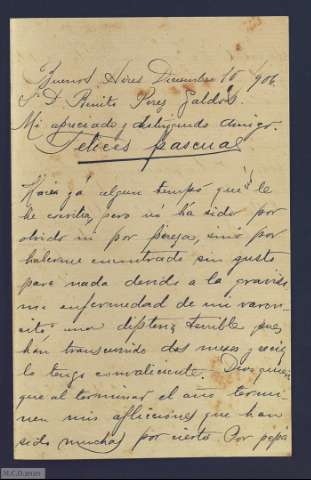 Buenos Aires Diciembre 10/906
S. D. Benito Perez Galdós.
Mi apreciado y distinguido amigo.
Felices pascuas
Hacia ya algun tiempo que no le
he escrito, pero no ha sido por
olvido ni por pereza, sino por
haberme encontrado sin gusto
para nada devido a la gravisi
ma enfermedad de mi varon-
sito una difteria terrible pues
han transcurrido dos meses y recien
lo tengo convaleciente. Dios quiera
que al terminar el año termi
nen mis aflicciones que han
sido muchas por cierto Por papá